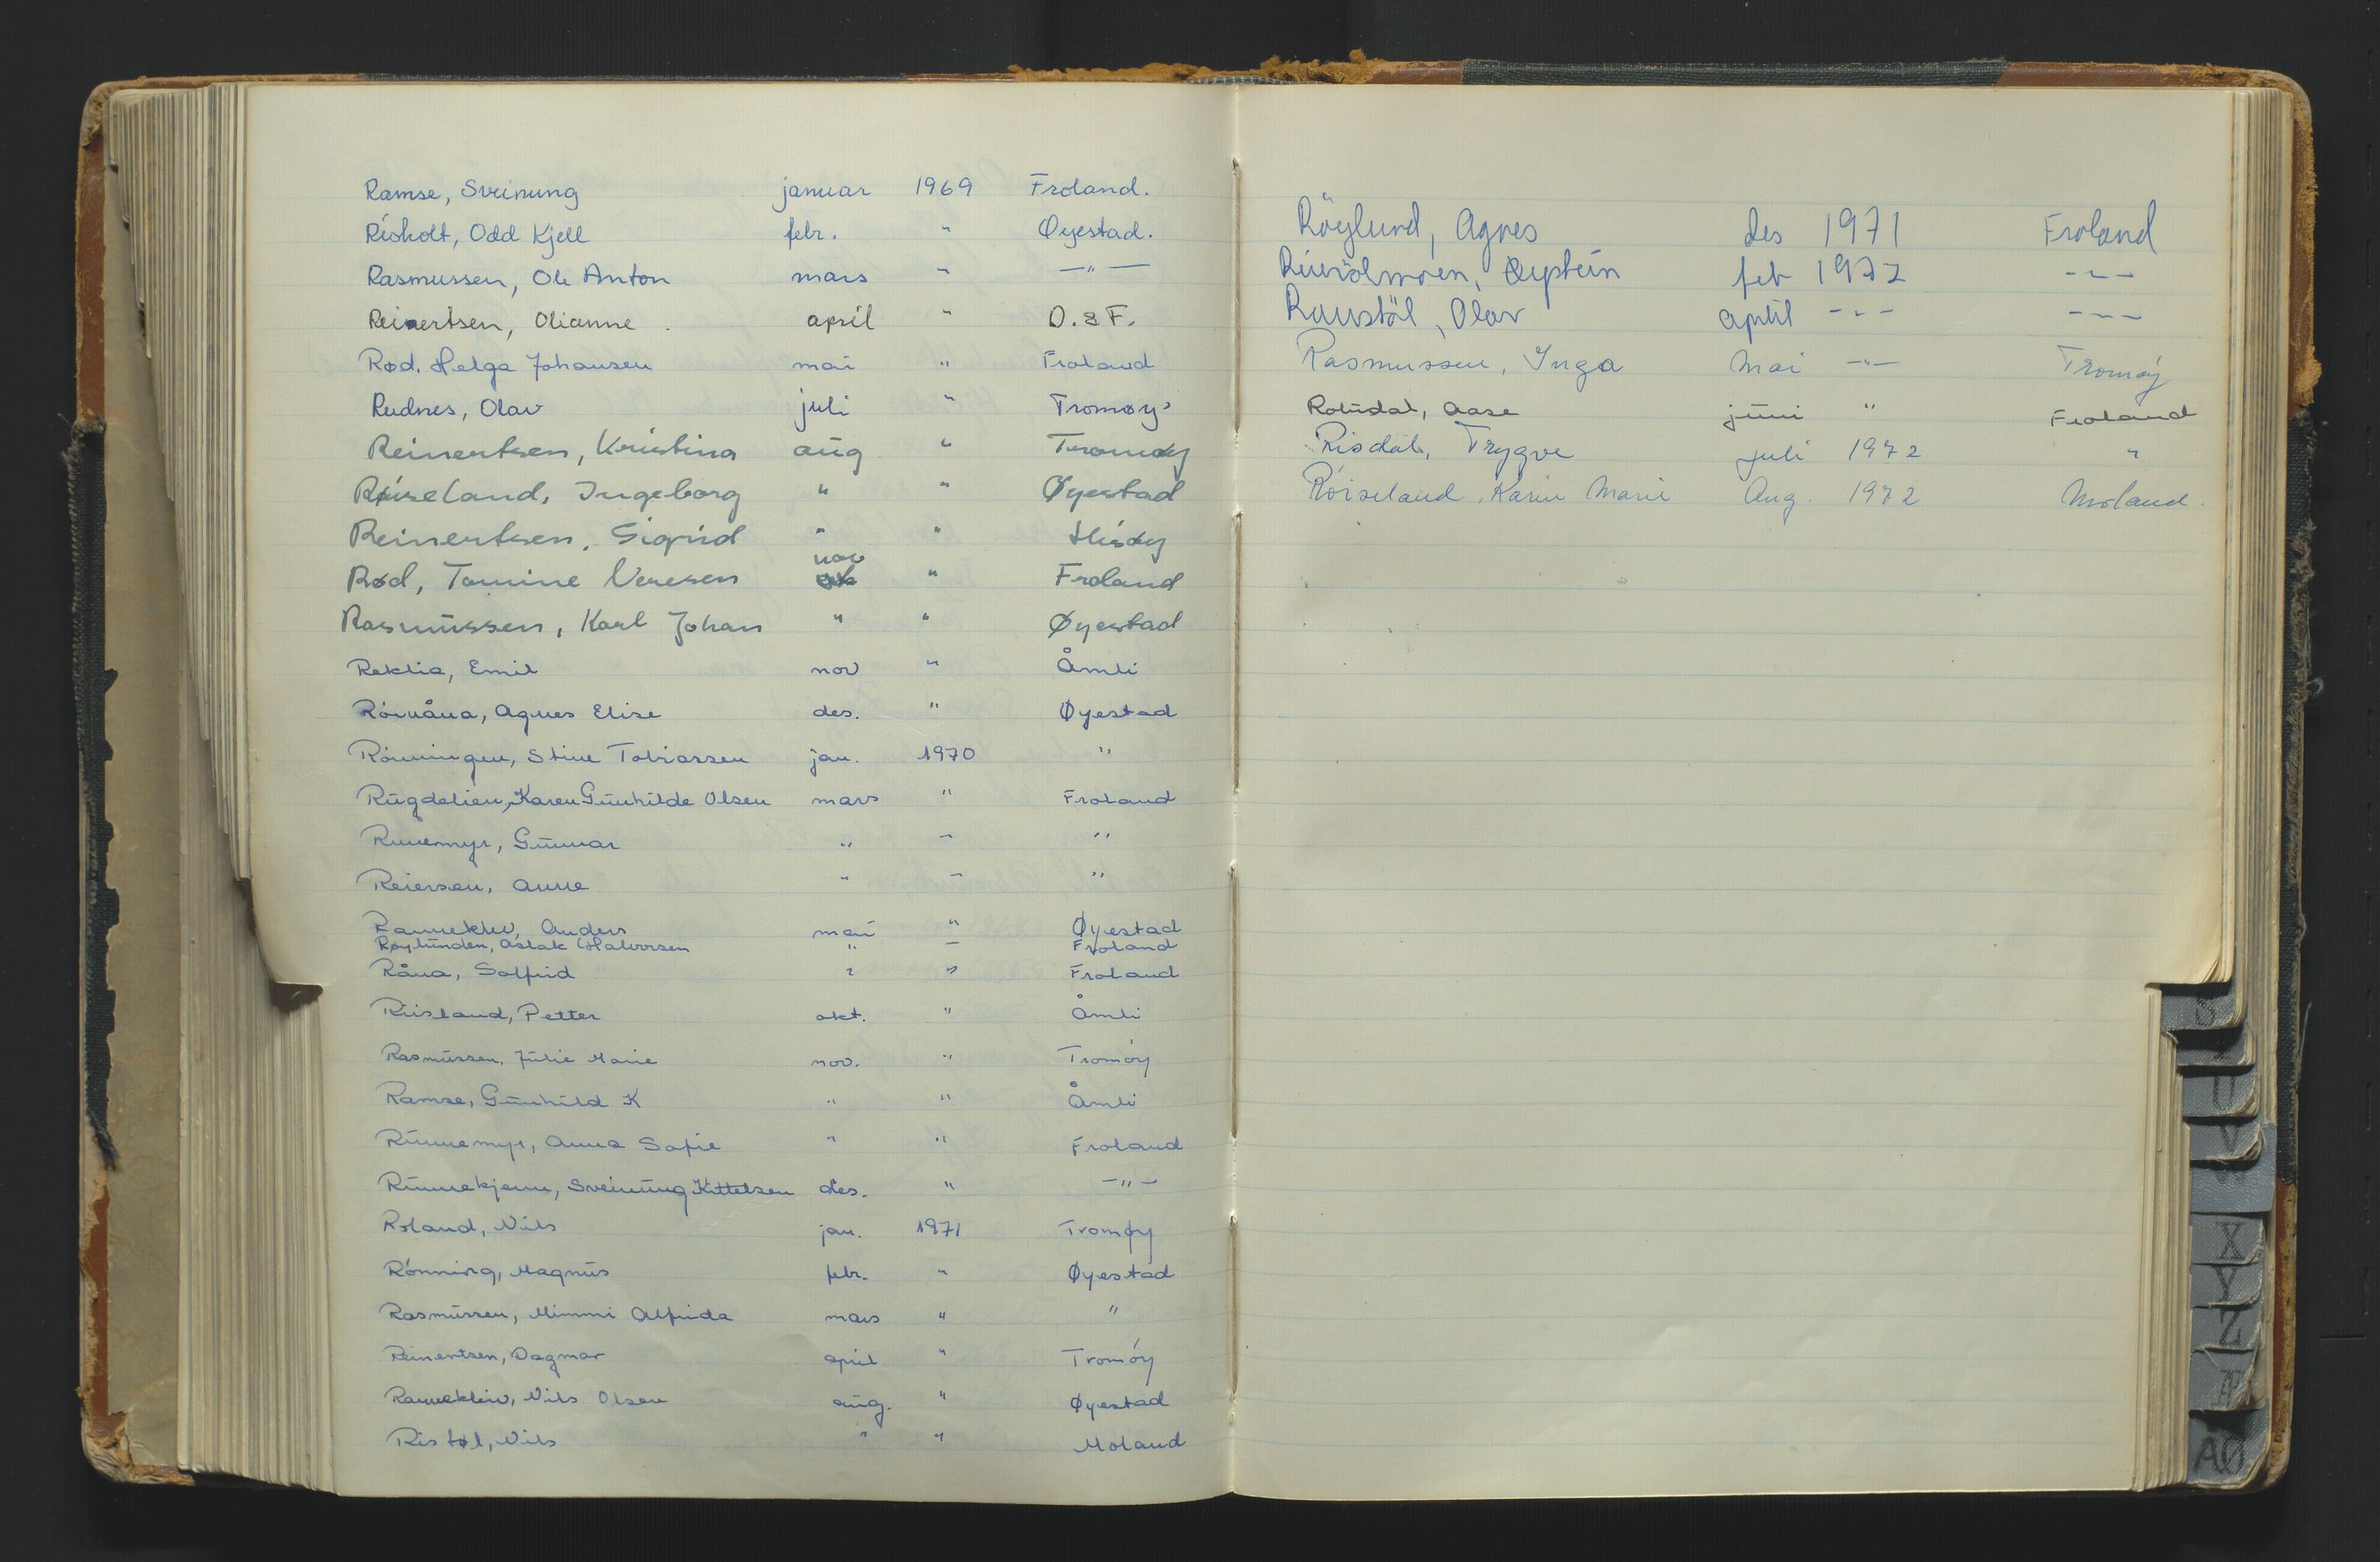 Ramse, Sveinung januar 1969 Froland.
Risholt, Odd Kjell febr. " Øyestad.
Rasmussen, Ole Anton mars " —"—
Reinertsen, Olianne april " D. & F.
Rød, Helga Johansen mai " Froland
Rudnes, Olav juli " Tromøy
Reinertsen, Kristina aug " Tromøy
Røiseland, Ingeborg " " Øyestad
Reinertsen, Sigrid " " Hisøy
nov
Rød, Tomine Veresen " Froland
Rasmussen, Karl Johan " " Øyestad
Reklia, Emil nov " Åmli
Róinåna, Agnes Elise des. " Øyestad
Rónningen, Stine Tobiassen jan. 1970 "
Rugdelien, Karen Gunhilde Olsen mars " Froland
Runemyr, Gunnar " " "
Reiersen, Anne " " "
Ranneklev, Anders mai " Øyestad
Røylunden, Aslak Halvorsen " — Froland
Råna, Solfrid " " Froland
Riisland, Petter okt. " Åmli
Rasmussen, Julie Marie nov. " Tromóy
Ramse, Gunhild K " " Åmli
Runnemyr, Anna Sofie " " Froland
Runnekjenn, Sveinung Kittelsen des. " —"—
Roland, Nils jan. 1971 Tromøy
Rónning, Magnus febr. " Øyestad
Rasmussen, Mimmi Alfrida mars " "
Reinertsen, Dagmar april " Tromóy
Ranneklev, Nils Olsen aug. " Øyestad
Ristøl, Nils " " Moland
Röylund, Agnes des 1971 Froland
Øystein feb 1972 -"-
Raustöl, Olav april -"- -"-
Rasmussen, Inga Mai -"- Tromóy
Roludal, Aase juni " Froland
Risdal, Trygve juli 1972 "
Róiseland, Karin Marie Aug. 1972 Moland.
U
V
W
X
Y
Z
AØ